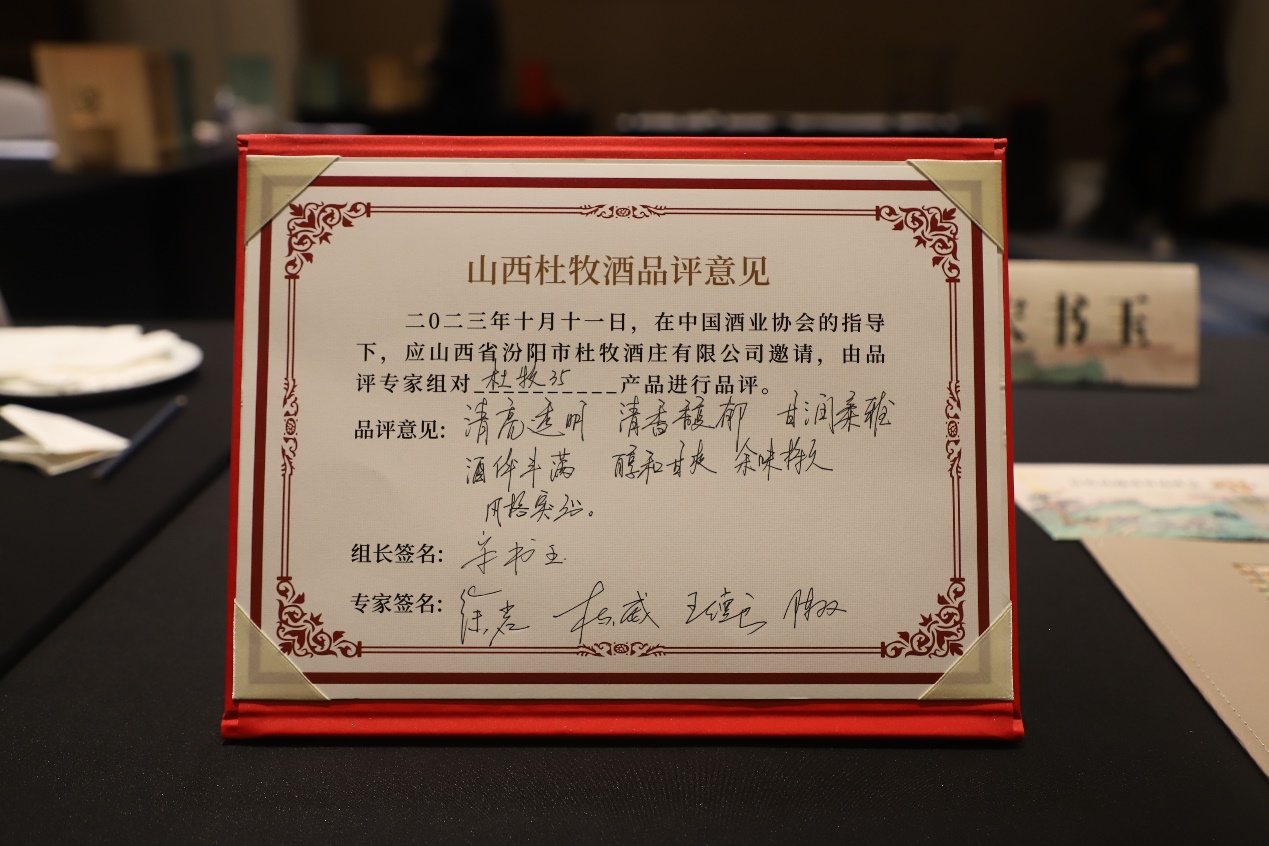 山西杜牧酒品评意见
二〇二三年十月十一日，在中国酒业协会的指导
下，应山西省汾阳市杜牧酒庄有限公司邀请，由品
评专家组对杜牧35产品进行品评。
品评意见：清亮透明 清香馥郁 甘润柔雅
酒体丰满 醇和甘爽 余味悠久
风格突出。
组长签名：宋书玉
专家签名：徐岩 杜威 王德良
书玉